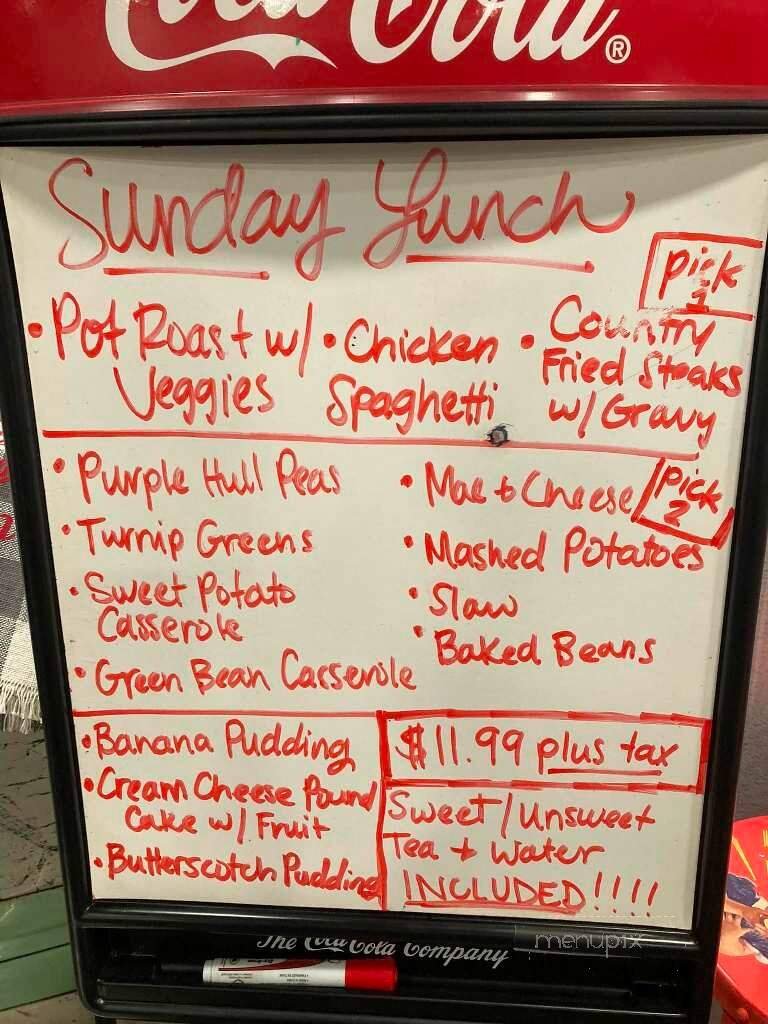 Coca-Cola®
Sunday Lunch
Pick 1
• Pot Roast w/ Veggies
• Chicken Spaghetti
• Country Fried Steaks w/ Gravy
Pick 2
• Purple Hull Peas
• Turnip Greens
• Sweet Potato
Casserole
• Green Bean Casserole
• Mac & Cheese
• Mashed Potatoes
• Slaw
• Baked Beans
• Banana Pudding
• Cream Cheese Pound
Cake w/ Fruit
• Butterscotch Pudding
$11.99 plus tax
Sweet/Unsweet
Tea + Water
INCLUDED!!!!
The Coca-Cola Company
menupix